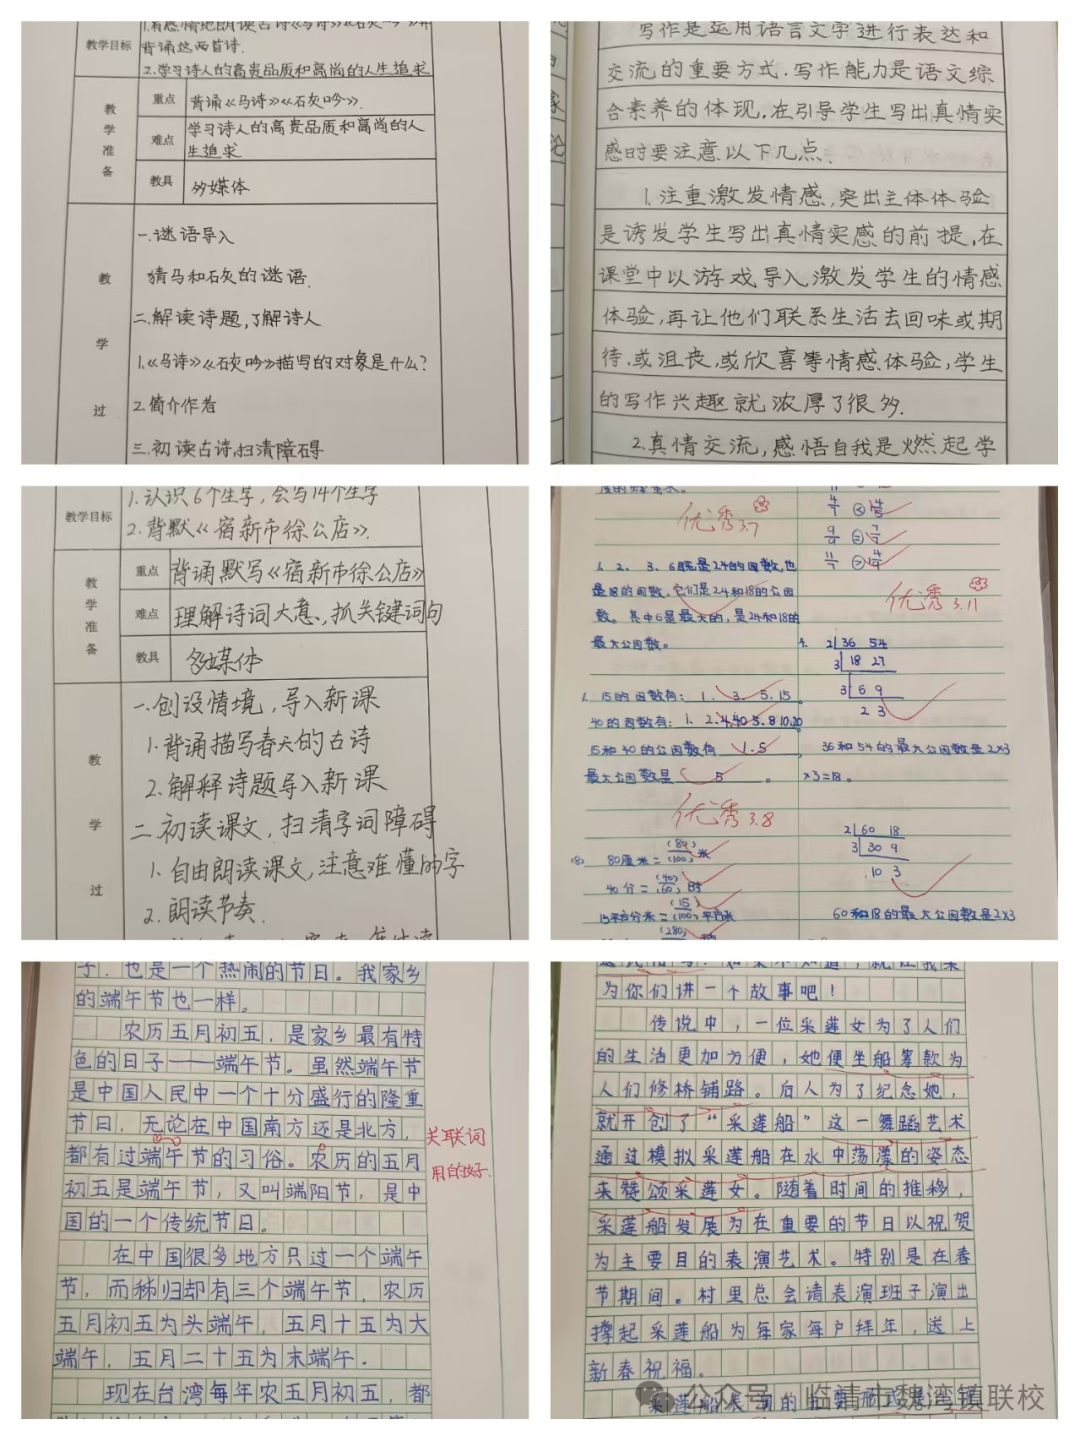 教学目标
1.有感情地朗读古诗《马诗》《石灰吟》并
背诵这两首诗.
2.学习诗人的高贵品质和高尚的人生追求
教学准备
重点
背诵《马诗》《石灰吟》.
难点
学习诗人的高贵品质和高尚的人
生追求
教具
多媒体
教学过
一.谜语导入
猜马和石灰的谜语.
二.解读诗题,了解诗人
1.《马诗》《石灰吟》描写的对象是什么?
2.简介作者
三.初读古诗,扫清障碍
写作是运用语言文字进行表达和
交流的重要方式.写作能力是语文综
合素养的体现,在引导学生写出真情实
感时要注意以下几点.
1.注重激发情感,突出主体体验
是诱发学生写出真情实感的前提,在
课堂中以游戏导入激发学生的情感
体验,再让他们联系生活去回味或期
待,或沮丧,或欣喜等情感体验,学生
的写作兴趣就浓厚了很多.
2.真情交流,感悟自我是燃起学
教学目标
1.认识6个生字,会写14个生字
2.背默《宿新市徐公店》.
教学准备
重点
背诵默写《宿新市徐公店》
难点
理解诗词大意、抓关键词句
教具
多媒体
教学过
一.创设情境,导入新课
1.背诵描写春天的古诗
2.解释诗题导入新课
二.初读课文,扫清字词障碍
1.自由朗读课文,注意难懂的字
2.朗读节奏.
优秀 3.7
1、2、3、6既是24的因数,也
是18的因数,它们是24和18的公因
数。其中6是最大的,是24和18的
最大公因数。
15的因数有: 1. 3. 5. 15.
40的因数有: 1. 2. 4. 40 5. 8 10. 20
15和40的公因数有 1. 5 ,
最大公因数是 5 。
优秀 3.8
80厘米=(80)/(100)米
40分=(40)/(60)时
15平方分米=(15)/(100)平方米
(280)
优秀 3.11
4. 2 36 54
3 18 27
3 6 9
2 3
36和54的最大公因数是2×3
×3=18。
2 60 18
3 30 9
10 3
60和18的最大公因数是2×3
子，也是一个热闹的节日。我家乡
的端午节也一样。
农历五月初五，是家乡最有特
色的日子——端午节。虽然端午节
是中国人民中一个十分盛行的隆重
节日，无论在中国南方还是北方，
都有过端午节的习俗。农历的五月
初五是端午节，又叫端阳节，是中
国的一个传统节日。
在中国很多地方只过一个端午
节，而秭归却有三个端午节，农历
五月初五为头端午，五月十五为大
端午，五月二十五为末端午.
现在台湾每年农五月初五，都
关联词
用的好.
为你们讲一个故事吧！
传说中，一位采莲女为了人们
的生活更加方便，她便坐船筹款为
人们修桥铺路。后人为了纪念她，
就开创了“采莲船”这一舞蹈艺术
通过模拟采莲船在水中荡漾的姿态
来赞颂采莲女。随着时间的推移，
采莲船发展为在重要的节日以祝贺
为主要目的表演艺术。特别是在春
节期间。村里总会请表演班子演出
撑起采莲船为每家每户拜年，送上
新春祝福。
采莲船表演的主要形式是
公众号 · 临清市魏湾镇联校